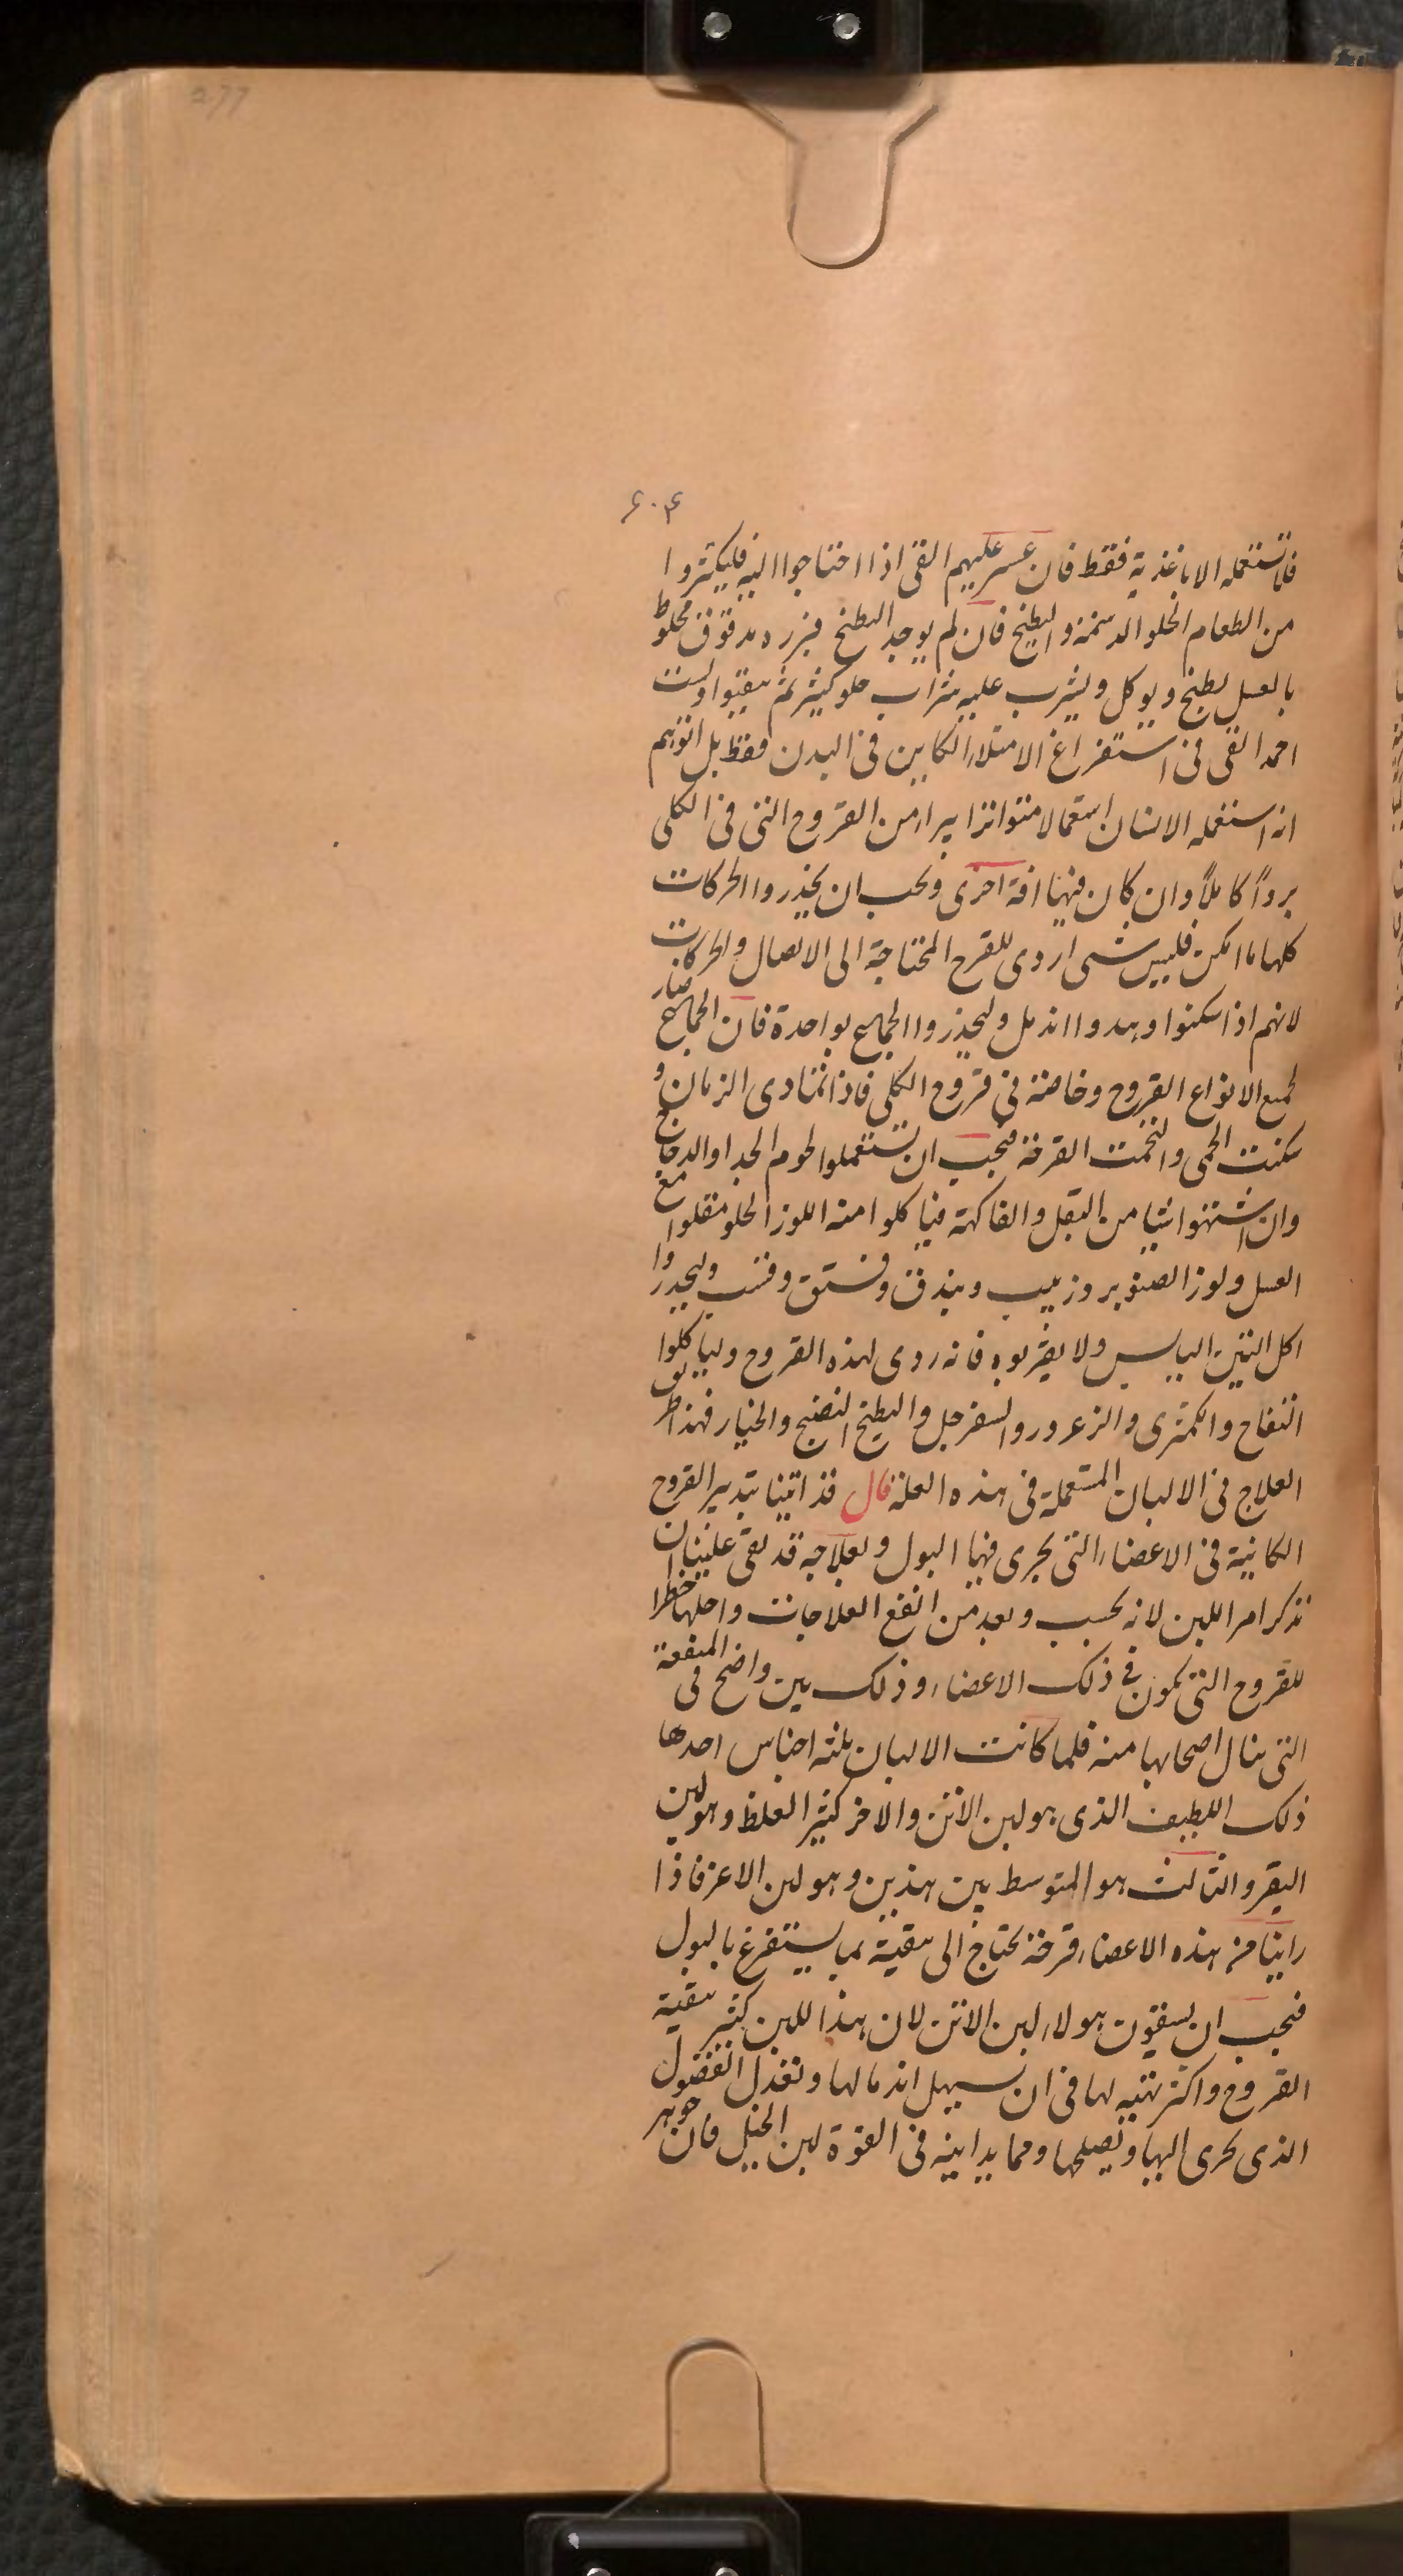 277
۶۰۴
فلا تستعمله الا باغذية فقط فان عسر عليهم القى اذا احتاجوا اليه فليكثروا
من الطعام الحلو الدسمة والبطيخ فان لم يوجد البطيخ فبزره مدقوق مخلوط
بالعسل يطبخ ويوكل ويشرب عليه شراب حلو كثير ثم يتقيوا ولست
احمد القى فى استفراغ الامتلاء الكاين فى البدن فقط بل اتوهم
انه استعمله الانسان استعمالا متواترا يبراء من القروح التى فى الكلى
بروًا كاملًا وان كان فيها افة اخرى ويجب ان يحذروا الحركات
كلها ما امكن فليس شى اردى للقرح المحتاجة الى الاتصال والحركات
لانهم اذا سكنوا وهدوا اندمل وليحذروا الجماع بواحدة فان الجماع ضار
لجميع الانواع القروح وخاصة فى قروح الكلى فاذا تمادى الزمان و
سكنت الحمى والتحمت القرحة فيجب ان يستعملوا لحوم الجدا والدجاج
وان اشتهوا شيا من البقل والفاكهة فياكلوا منه اللوز الحلو مقلوا مع
العسل ولوز الصنوبر وزبيب وبندق وفستق وقنب وليحذروا
اكل التين اليابس ولا يقربوه فانه ردى لهذه القروح ولياكلوا
التفاح والكمثرى والزعرور والسفرجل والبطيخ النضيج والخيار فهذا طريق
العلاج فى الالبان المستعملة فى هذه العلة قال قد اتينا بتدبير القروح
الكائنة فى الاعضاء التى يجرى فيها البول وبعلاجه قد بقى علينا ان
نذكر امر اللبن لانه يحسب ويعد من انفع العلاجات واجلها خطرا
للقروح التى تكون فى ذلك الاعضاء وذلك بين واضح فى المنفعة
التى ينال اصحابها منه فلما كانت الالبان ثلثه اجناس احدها
ذلك اللطيف الذى هو لبن الاتن والاخر كثير الغلظ وهو لبن
البقر والثالث هو المتوسط بين هذين وهو لبن الاعنز فاذا
راينا فى هذه الاعضاء قرحة تحتاج الى تنقية بما يستفرغ بالبول
فيجب ان يسقون هولاء لبن الاتن لان هذا اللبن كثير تنقية
القروح واكثر تنبيه لها فى ان يسهل اندمالها وتعدل الفضول
الذى يجرى اليها وتصلحها ومما يدانيه فى القوة لبن الخيل فان جوهر